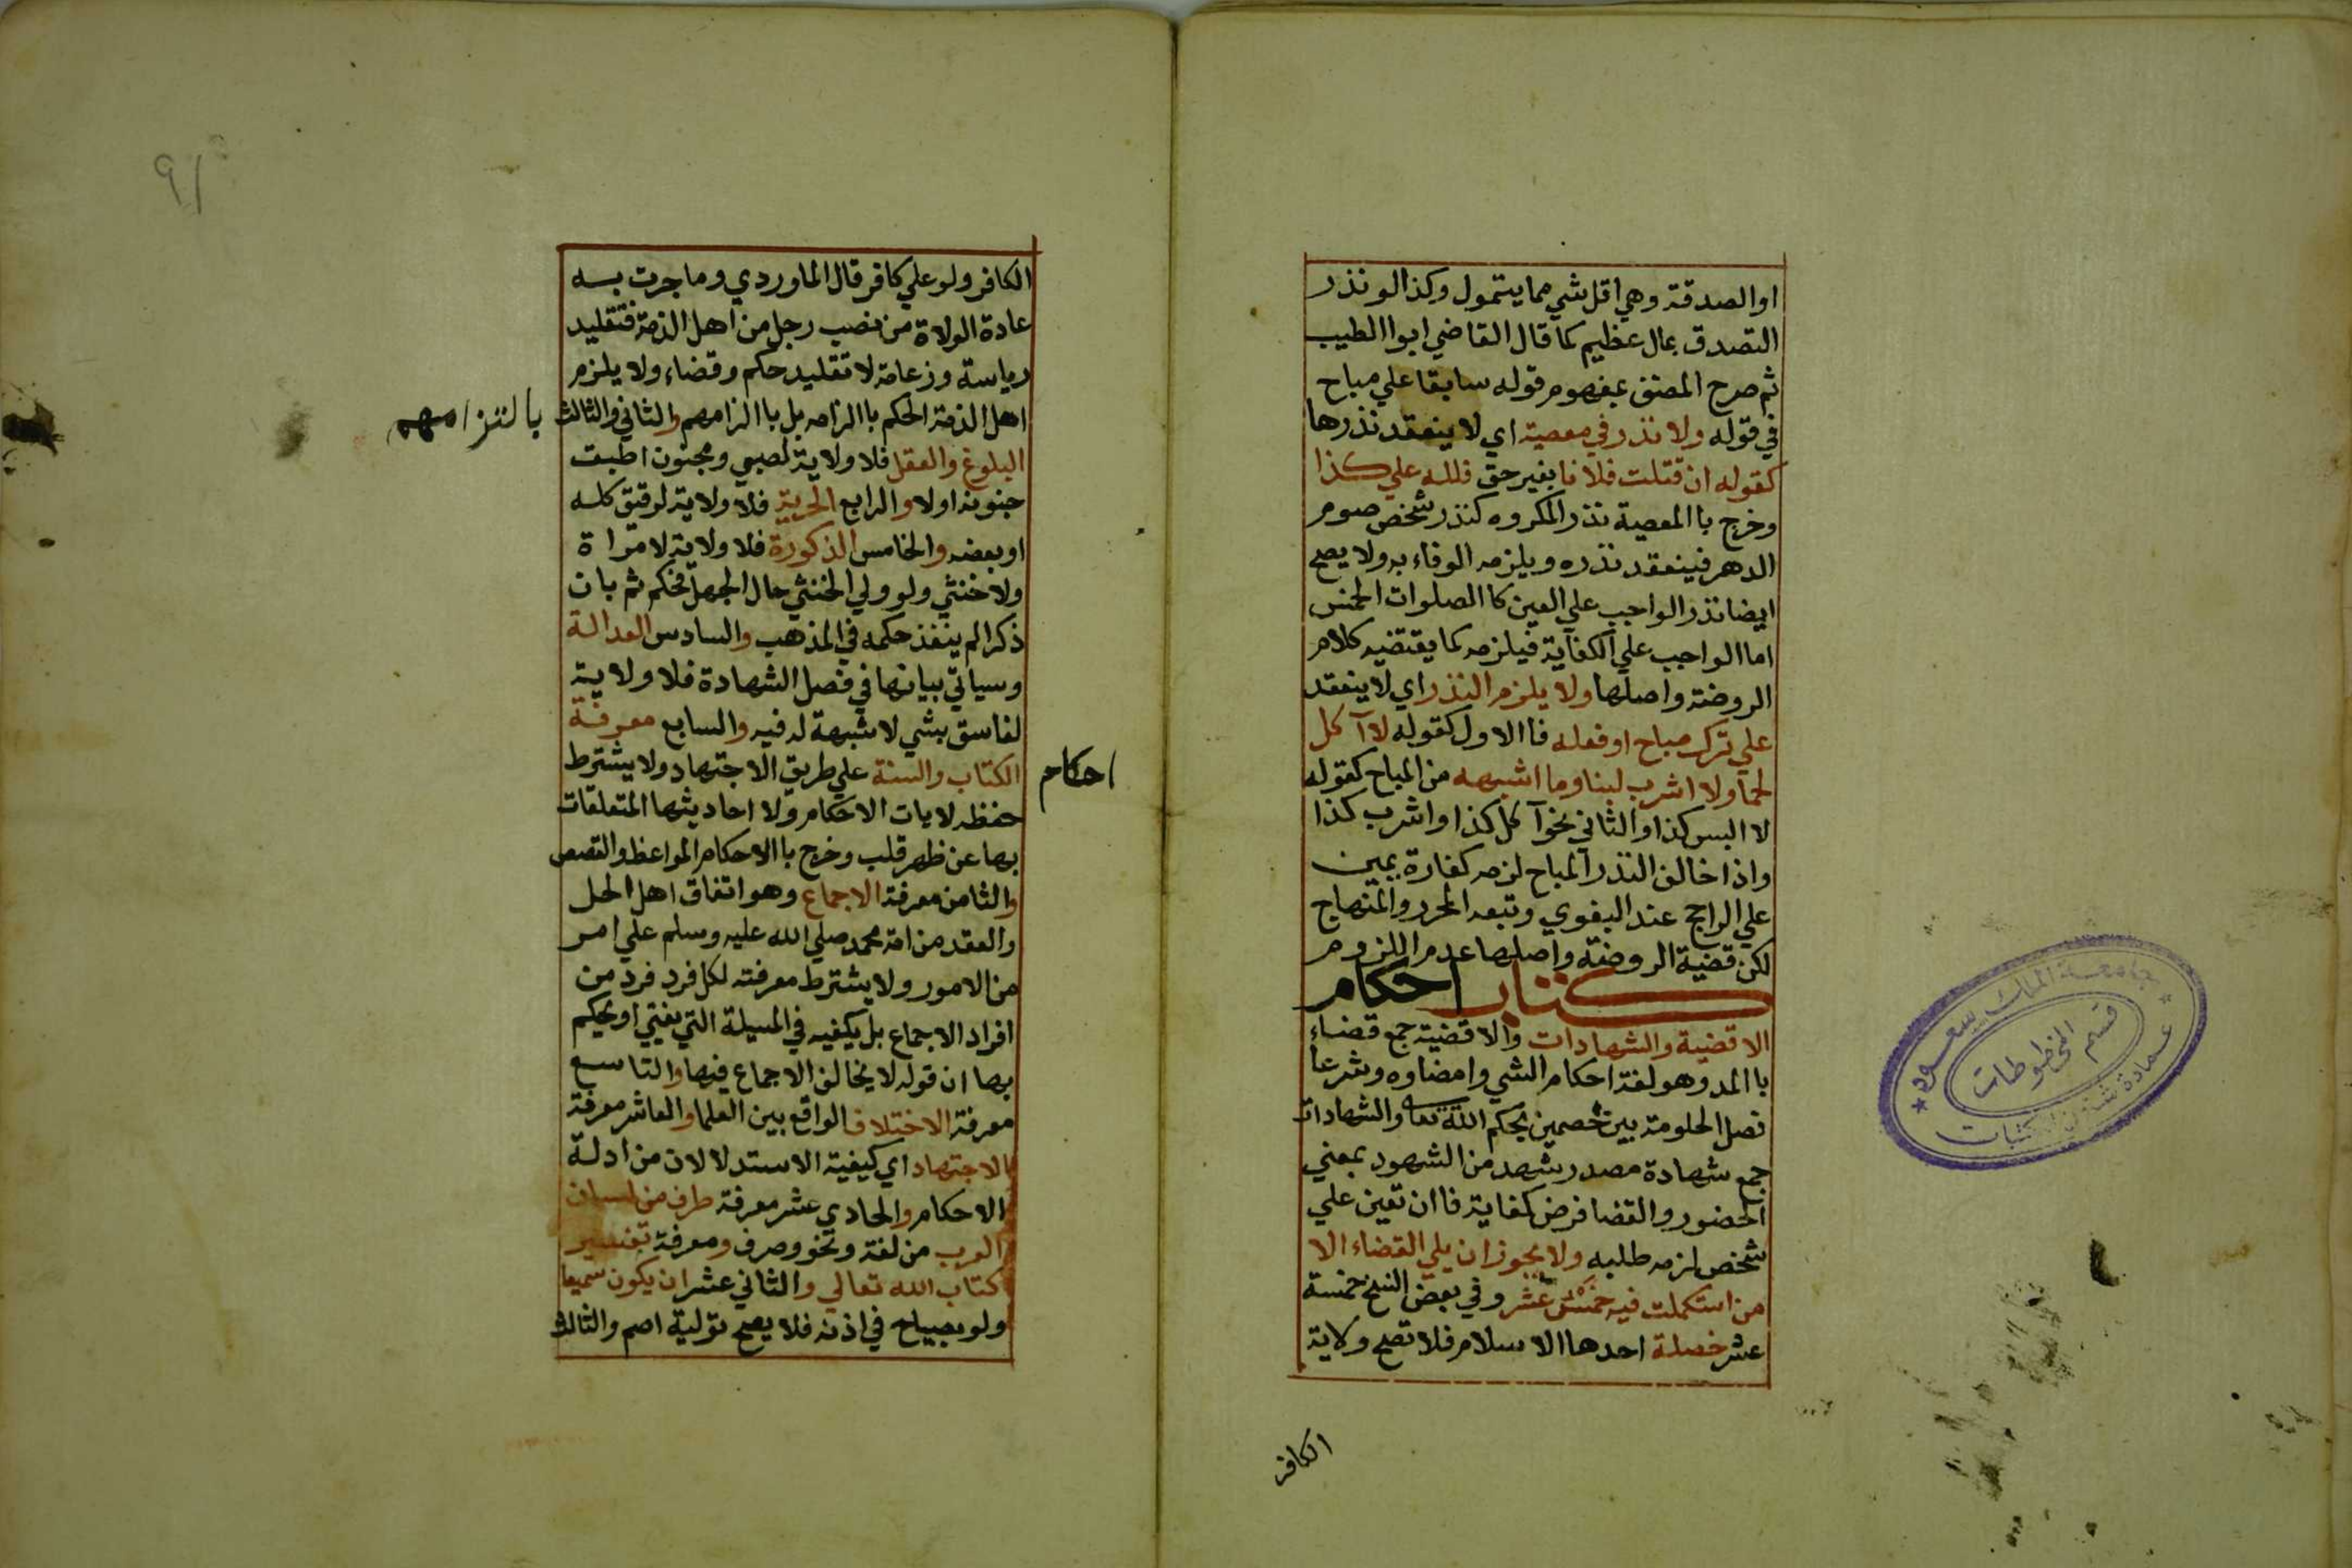 او الصدقة وهي اقل شي مما يتمول وكذا لو نذر
التصدق بمال عظيم كما قال القاضي ابوا الطيب
ثم صرح المصنف بمفهوم قوله سابقا علي مباح
في قوله ولا نذر في معصية اي لا ينعقد نذرها
كقوله ان قتلت فلانا بغير حق فلله علي كذا
وخرج با المعصية نذر المكروه كنذر شخص صوم
الدهر فينعقد نذره ويلزمه الوفاء به ولا يصح
ايضا نذر الواجب علي العين كا الصلوات الخمس
اما الواجب علي الكفاية فيلزمه كما يقتضيه كلام
الروضة واصلها ولا يلزم النذر اي لا ينعقد
علي ترك مباح او فعله فا الاول كقوله لا آكل
لحما ولا اشرب لبنا وما اشبهه من المباح كقوله
لا البس كذا والثاني نحو آكل كذا واشرب كذا
واذا خالف النذر المباح لزمه كفارة يمين
علي الراجح عند البغوي وتبعه المحرر والمنهاج
لكن قضية الروضة واصلها عدم اللزوم
كتاب احكام
الاقضية والشهادات والاقضية جمع قضاء
با المد وهو لغة احكام الشي وامضاوه وشرعا
فصل الحلومة بين خصمين بحكم الله تعا والشهادات
جمع شهادة مصدر شهد من الشهود بمعني
الحضور والقضا فرض كفاية فا ان تعين علي
شخص لزمه طلبه ولا يجوز ان يلي القضاء الا
من استكملت فيه خمس عشر وفي بعض النسخ خمسة
عشر خصلة احدها الاسلام فلا تصح ولاية
الكافر
جامعة الملك سعود
قسم المخطوطات
عمادة شئون المكتبات
٩١
الكافر ولو علي كافر قال الماوردي وما جرت به
عادة الولاة من نصب رجل من اهل الذمة فتقليد
رياسة وزعامة لا تقليد حكم وقضاء ولا يلزم
اهل الذمة الحكم با الزامه بل با الزامهم والثاني والثالث
بالتزامهم
البلوغ والعقل فلا ولاية لصبي ومجنون اطبق
جنونه اولا والرابع الحرية فلا ولاية لرقيق كله
او بعضه والخامس الذكورة فلا ولاية لامراة
ولا خنثي ولو ولي الخنثي حال الجهل فحكم ثم بان
ذكرا لم ينفذ حكمه في المذهب والسادس العدالة
وسياتي بيانها في فصل الشهادة فلا ولاية
لفاسق بشي لا شبهة له فيه والسابع معرفة
احكام
الكتاب والسنة علي طريق الاجتهاد ولا يشترط
حفظه لايات الاحكام ولا احاديثها المتعلقات
بها عن ظهر قلب وخرج با الاحكام المواعظ والقصص
والثامن معرفة الاجماع وهو اتفاق اهل الحل
والعقد من امة محمد صلي الله عليه وسلم علي امر
من الامور ولا يشترط معرفته لكل فرد فرد من
افراد الاجماع بل يكفيه في المسيلة التي يفتي او يحكم
بها ان قوله لا يخالف الاجماع فيها والتاسع
معرفة الاختلاف الواقع بين العلما والعاشر معرفة
الاجتهاد اي كيفية الاستدلالات من ادلة
الاحكام والحادي عشر معرفة طرف من لسان
العرب من لغة ونحو وصرف ومعرفة تفسير
كتاب الله تعالي والثاني عشر ان يكون سميعا
ولو بصياح في اذنه فلا يصح تولية اصم والثالث